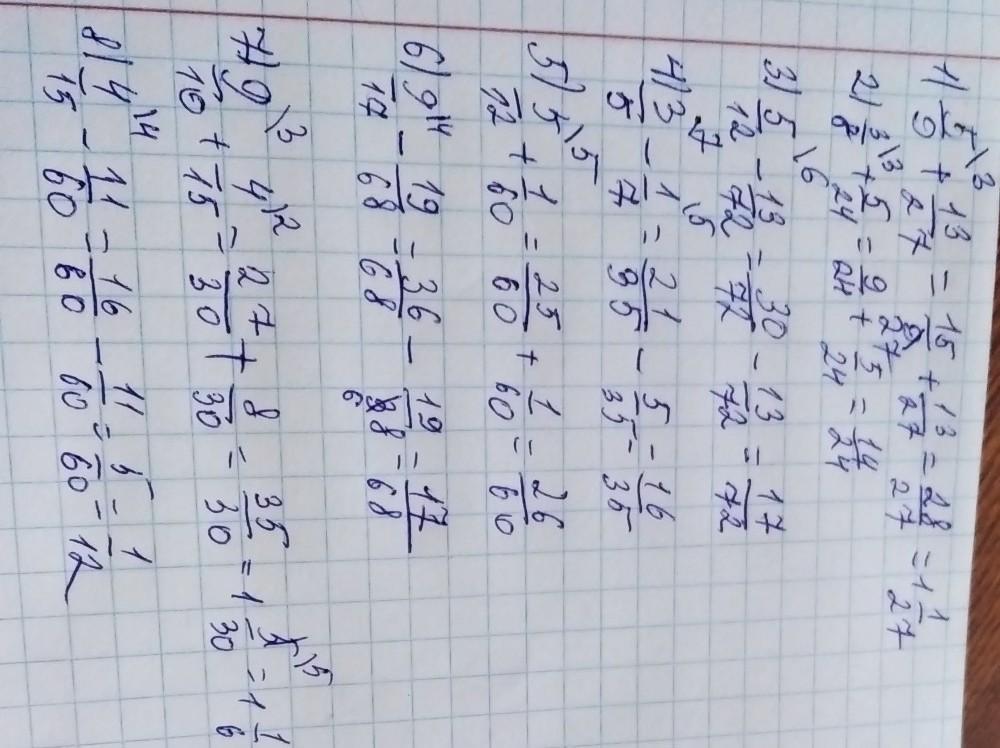 1) 5/9\3 + 13/27 = 15/27 + 13/27 = 28/27 = 1 1/27
2) 3/8\3 + 5/24 = 9/24 + 5/24 = 14/24
3) 5/12\6 - 13/72 = 30/72 - 13/72 = 17/72
4) 3/5\7 - 1/7\5 = 21/35 - 5/35 = 16/35
5) 5/12\5 + 1/60 = 25/60 + 1/60 = 26/60
6) 9/17\4 - 19/68 = 36/68 - 19/68 = 17/68
7) 9/10\3 + 4/15\2 = 27/30 + 8/30 = 35/30 = 1 5/30\5 = 1 1/6
8) 4/15\4 - 11/60 = 16/60 - 11/60 = 5/60 = 1/12